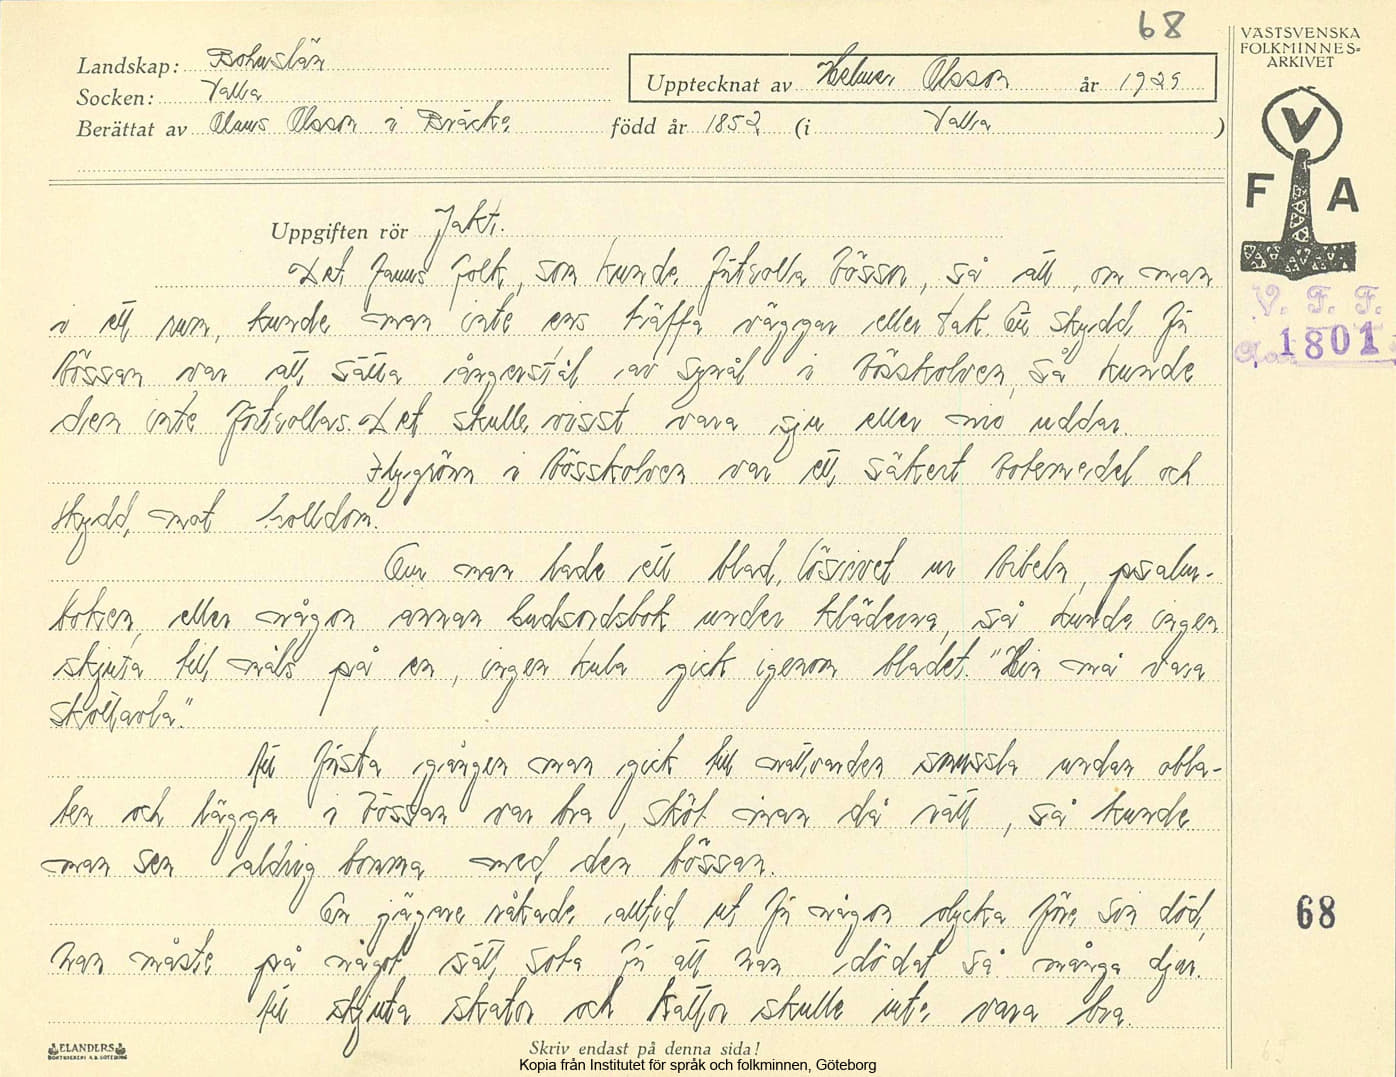 68
VÄSTSVENSKA
FOLKMINNES-
ARKIVET
Landskap: Bohuslän
Socken: Valla
Upptecknat av Helmer Olsson år 1929
Berättat av Olaus Olsson i Bräcke född år 1852 (i Valla )
V
F A
Uppgiften rör Jakt.
V. F. F.
1801
Det fanns folk, som kunde förtrolla bössor, så att, om man
i ett rum, kunde man inte ens träffa väggar eller tak. Ett skydd för
bössan var att sätta ångerstål av synål i bösskolven, så kunde
den inte förtrollas. Det skulle visst vara sju eller nio uddar.
Flygrönn i bösskolven var ett säkert botemedel och
skydd mot trolldom.
Om man hade ett blad, lösrivet ur bibeln, psalm-
boken, eller någon annan gudsordsbok under kläderna, så kunde ingen
skjuta till måls på en, ingen kula gick igenom bladet. "Hin må vara
skottavla."
Att första gången man gick till nattvarden smussla undan obla-
ten och lägga i bössan var bra, sköt man då rätt, så kunde
man sen aldrig bomma med den bössan.
En jägare råkade alltid ut för någon olycka före sin död,
han måste på något sätt sota för att han dödat så många djur.
Att skjuta skator och kattor skulle inte vara bra.
68
ELANDERS
BOKTRYCKERI A.B. GÖTEBORG
Skriv endast på denna sida!
Kopia från Institutet för språk och folkminnen, Göteborg